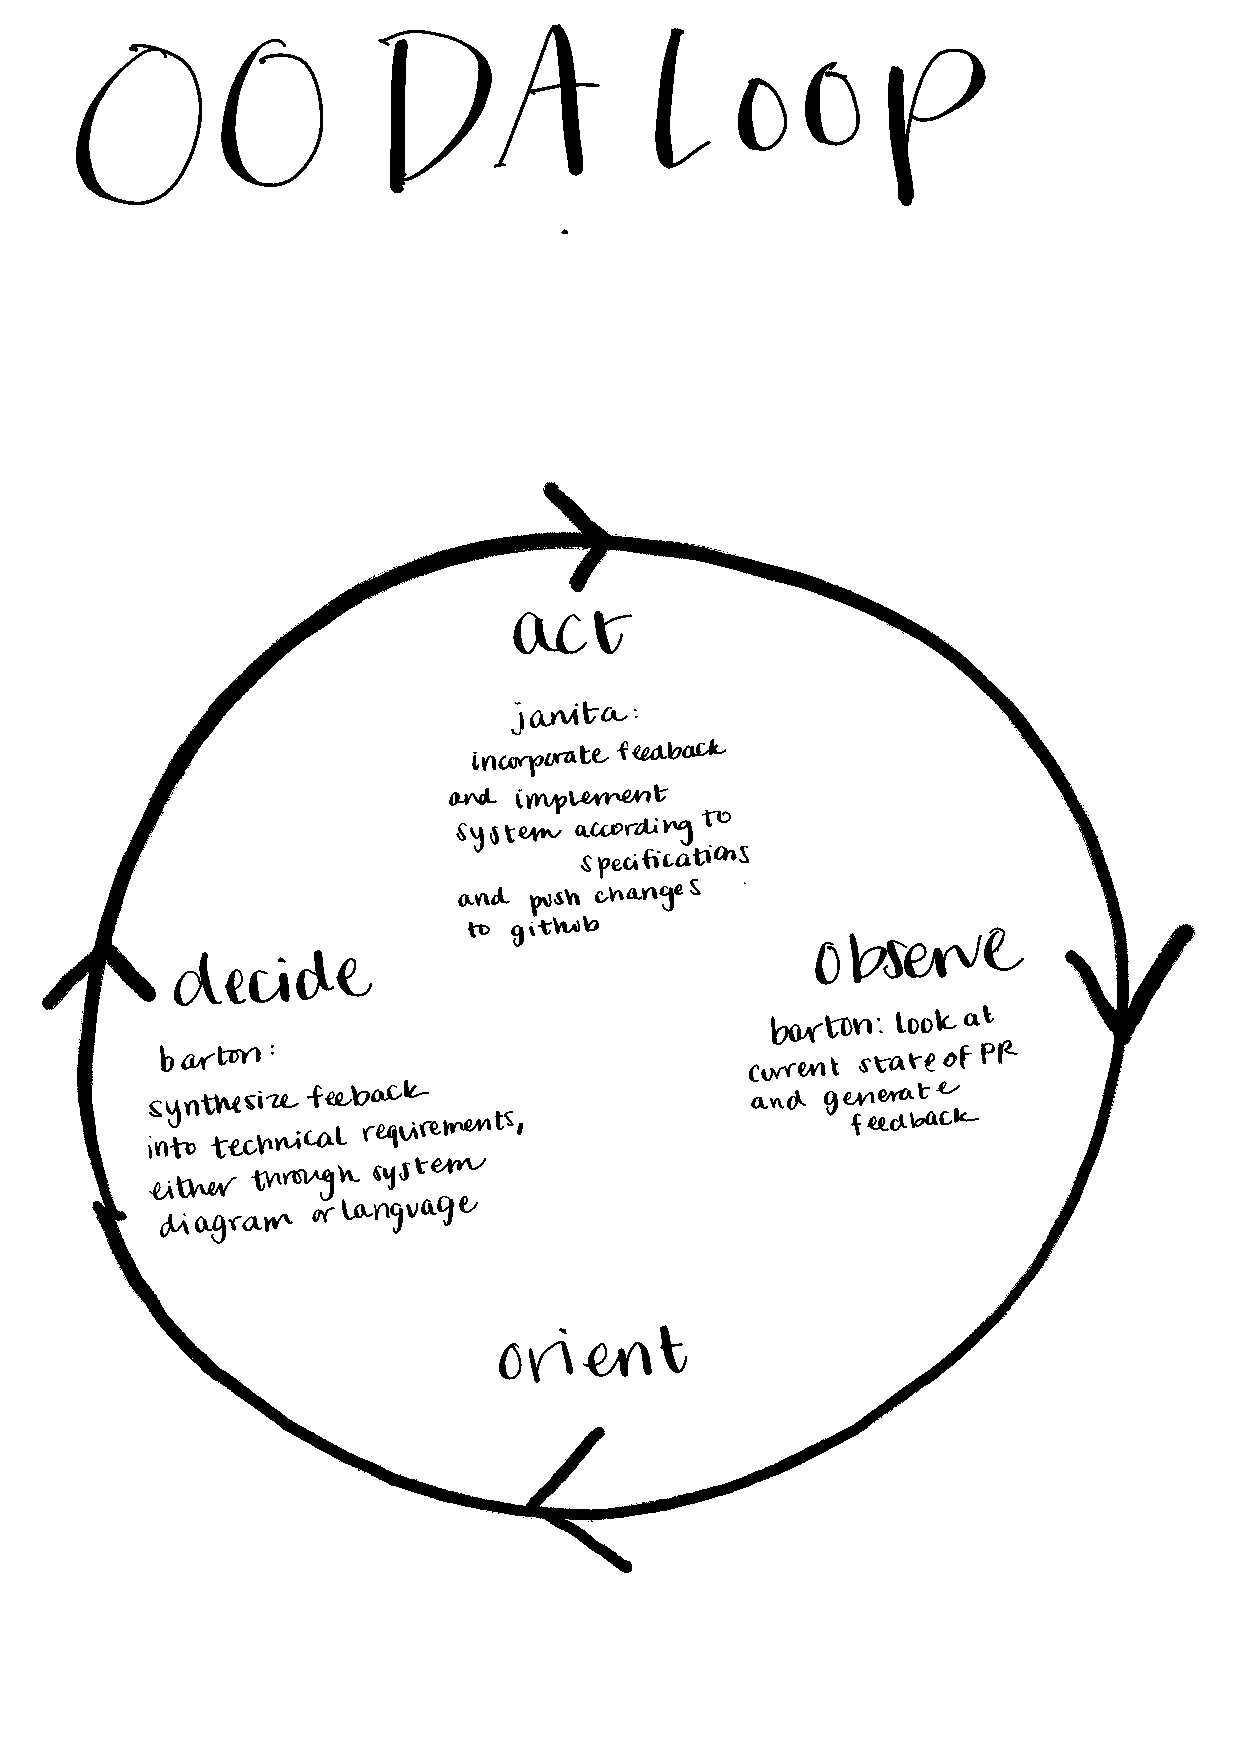 OODA Loop
act
janita:
incorporate feedback
and implement
system according to
specifications
and push changes
to github
observe
barton: look at
current state of PR
and generate
feedback
decide
barton:
synthesize feeback
into technical requirements,
either through system
diagram or language
orient